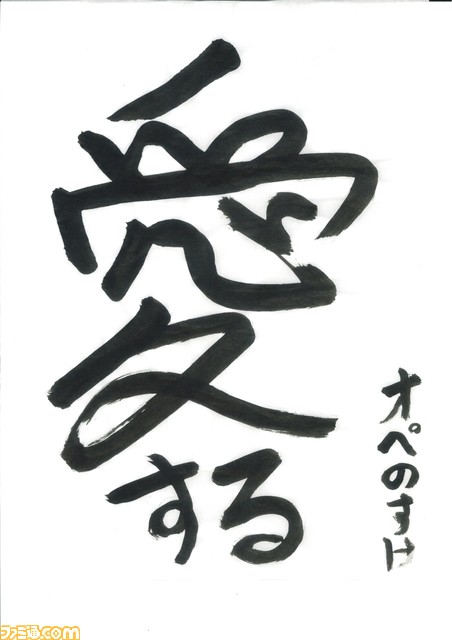 愛する
オペのすけ
ファミ通.com